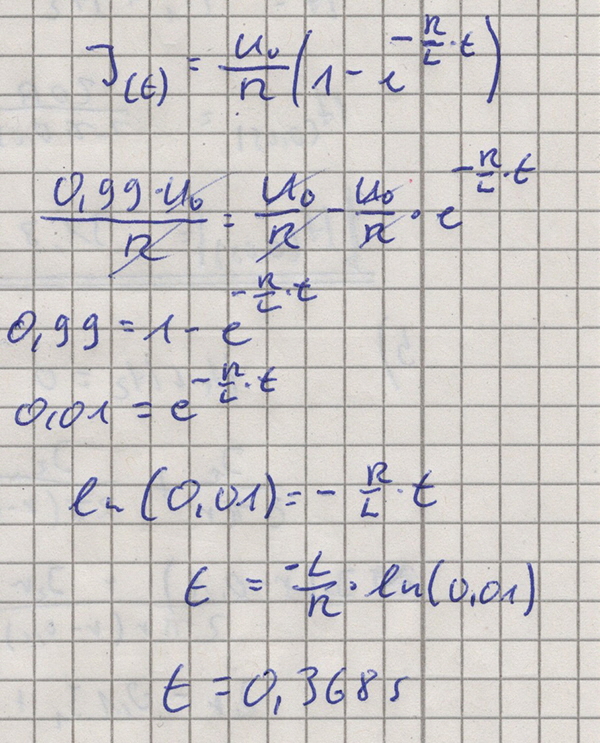 J(t) = U₀/R (1 - e^(-R/L · t))
0,99 · U₀/R = U₀/R - U₀/R · e^(-R/L · t)
0,99 = 1 - e^(-R/L · t)
0,01 = e^(-R/L · t)
ln(0,01) = - R/L · t
t = -L/R · ln(0,01)
t = 0,368 s